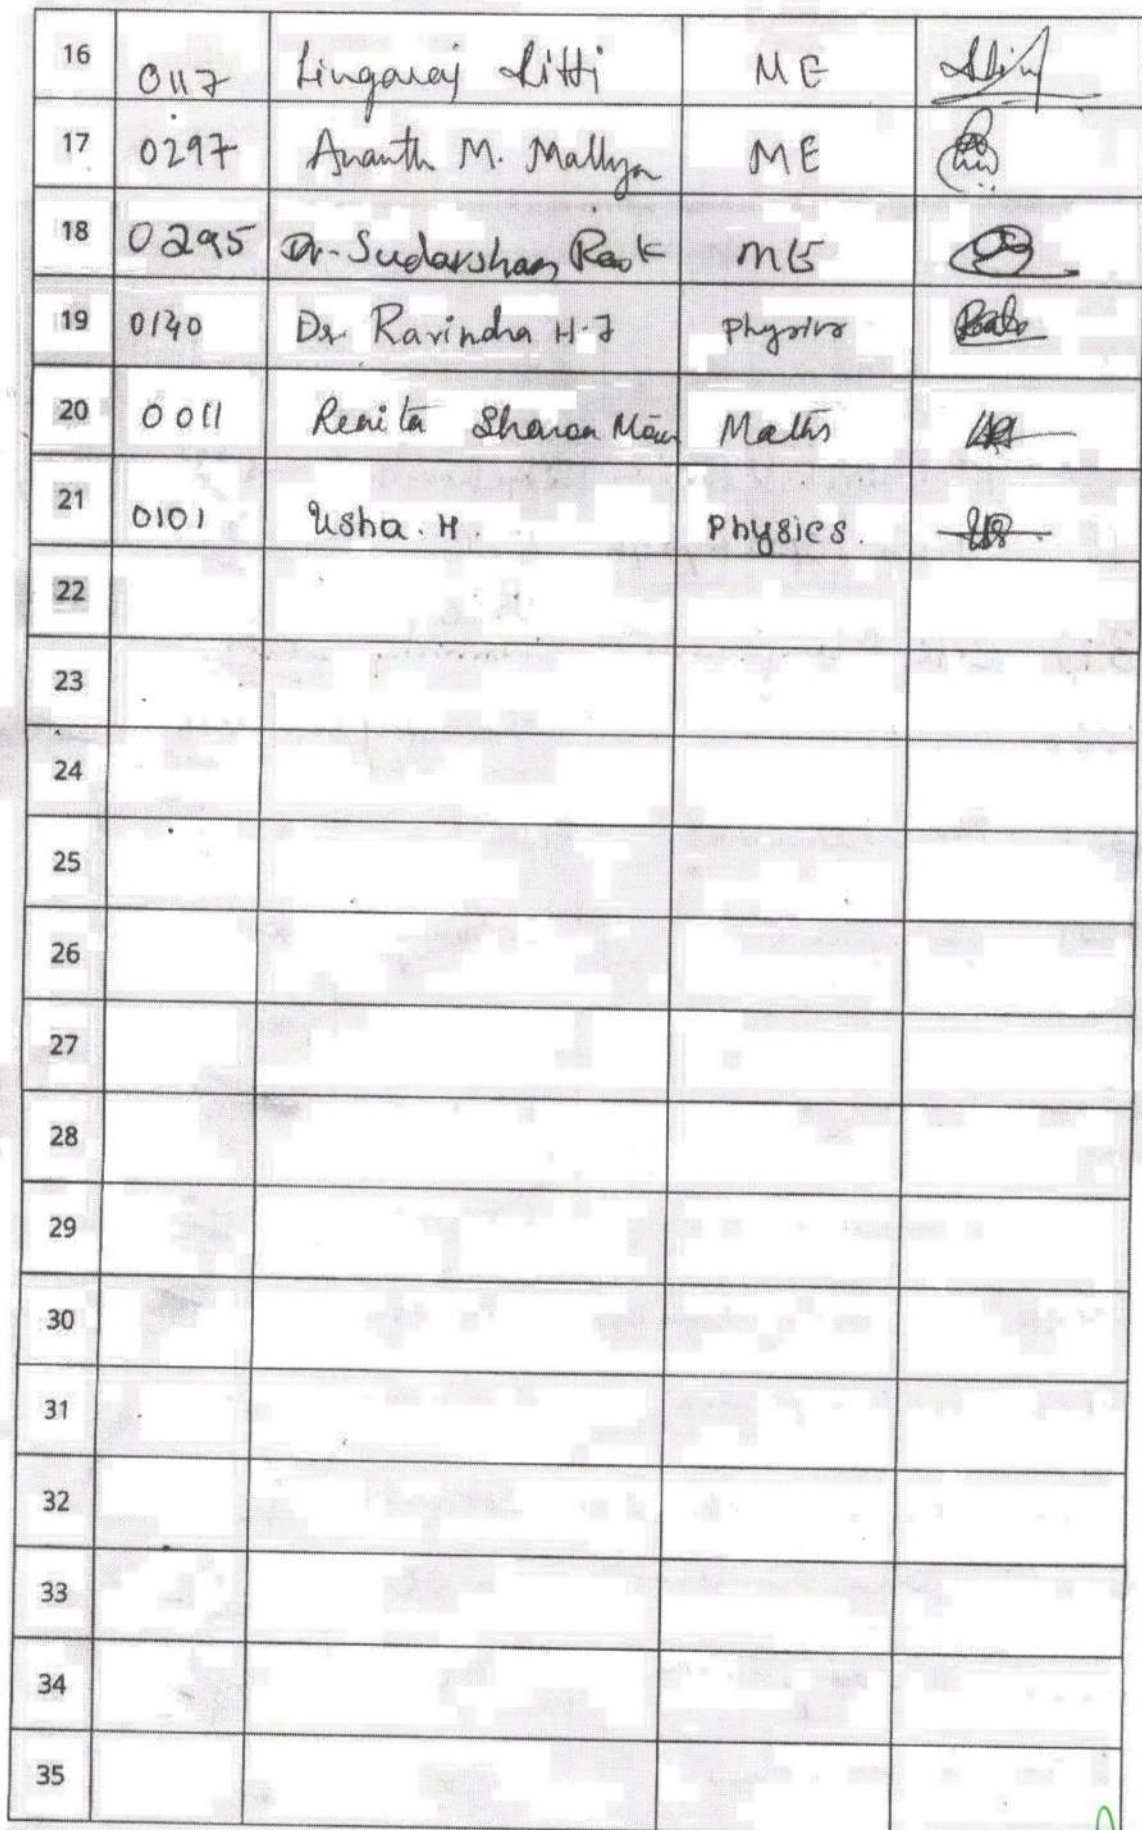 16 0117 Lingaraj Litti ME
17 0297 Ananth M. Mallya ME
18 0295 Dr. Sudarshan Rao K ME
19 0140 Dr Ravindra H.J Physics
20 0011 Renita Sharon Maths
21 0101 Usha. H. Physics.
22
23
24
25
26
27
28
29
30
31
32
33
34
35